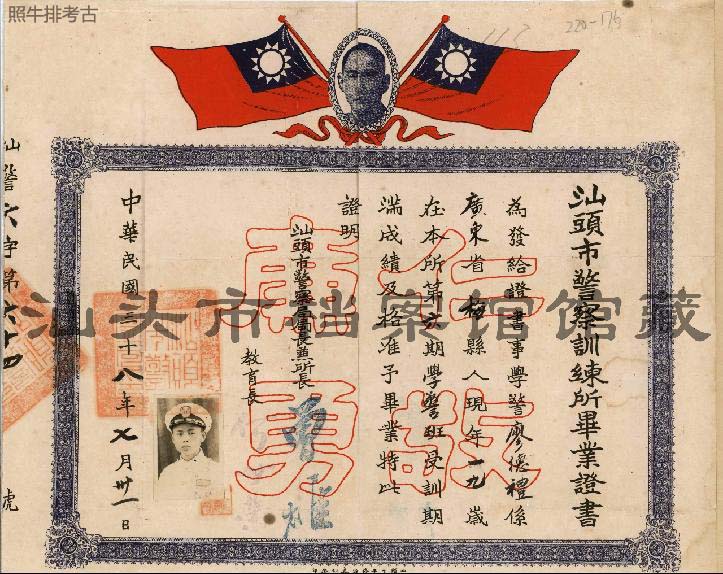 照牛排考古
220-175
汕頭市警察訓練所畢業證書
為發給證書事學警廖德禮係
廣東省梅縣人現年一九歲
在本所第六期學警班受訓期
滿成績及格准予畢業特此
證明
汕頭市警察局局長兼所長
教育長
中華民國三十八年七月卅一日
汕警六字第六十四
號
仁
勇
汕头市档案馆馆藏